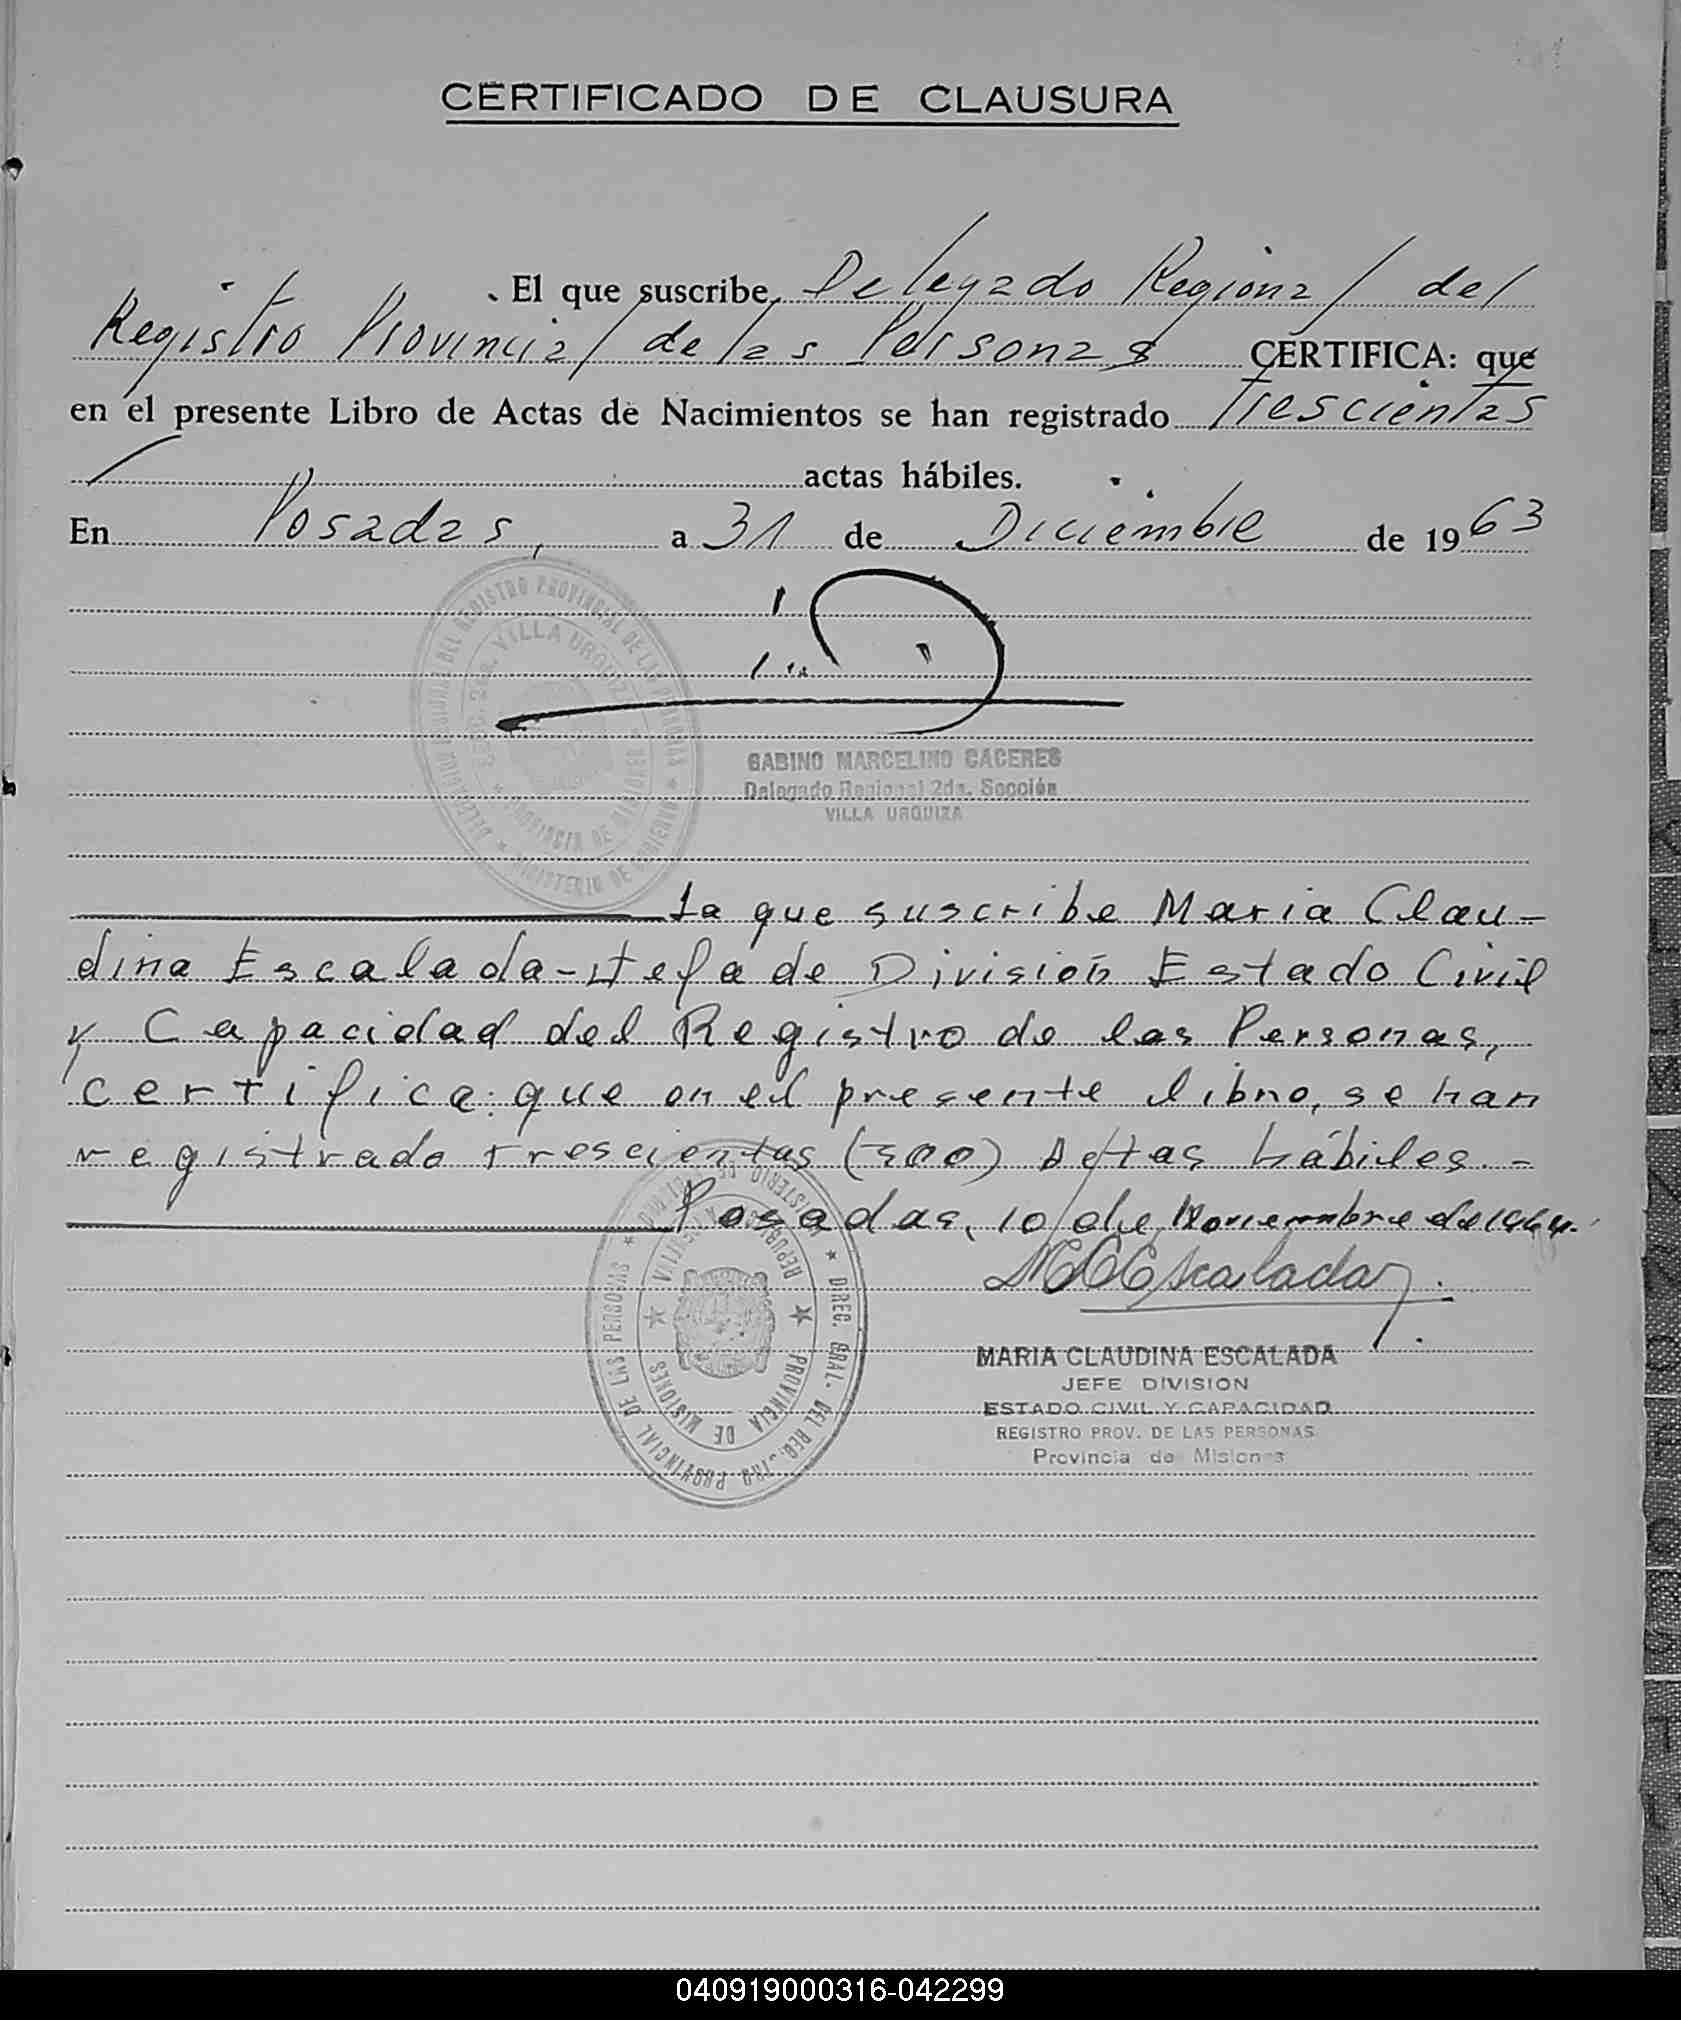 CERTIFICADO DE CLAUSURA
El que suscribe, Delegado Regional del
Registro Provincial de las Personas CERTIFICA: que
en el presente Libro de Actas de Nacimientos se han registrado Trescientas
actas hábiles.
En Posadas, a 31 de Diciembre de 1963
DELEGACION REGIONAL DEL REGISTRO PROVINCIAL DE LAS PERSONAS * MINISTERIO DE GOBIERNO *
SECC. 2da. VILLA URQUIZA * PROVINCIA DE MISIONES *
GABINO MARCELINO CACERES
Delegado Regional 2da. Sección
VILLA URQUIZA
La que suscribe Maria Clau-
dina Escalada - Jefa de División Estado Civil
y Capacidad del Registro de las Personas,
certifica: que en el presente libro, se han
registrado trescientas (300) Actas hábiles. -
Posadas, 10 de Noviembre de 1964.
MCEscalada
* DIREC. GRAL. DEL REGISTRO PROVINCIAL DE LAS PERSONAS * MINISTERIO DE
REPUBLICA ARGENTINA * PROVINCIA DE MISIONES *
MARIA CLAUDINA ESCALADA
JEFE DIVISION
ESTADO CIVIL Y CAPACIDAD
REGISTRO PROV. DE LAS PERSONAS
Provincia de Misiones
040919000316-042299